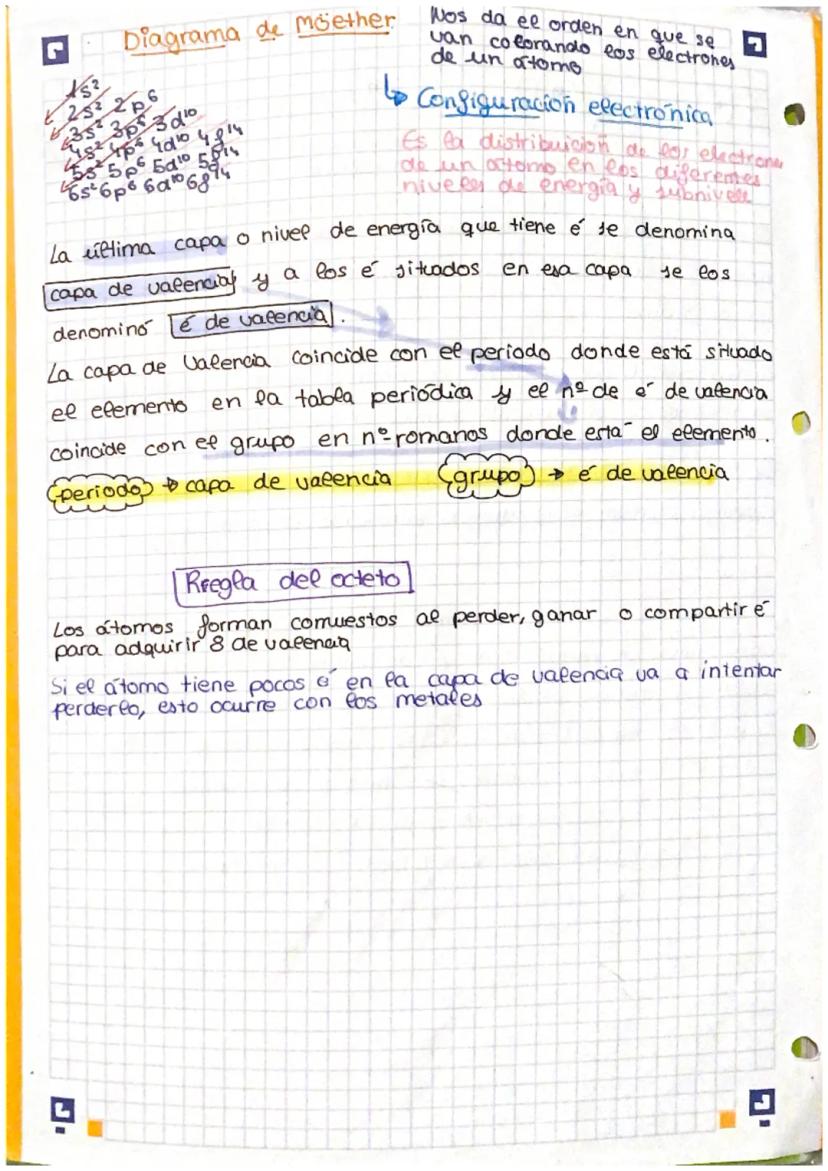 Diagrama de Möether
Nos da el orden en que se
van colorando los electrones
de un átomo
↳ Configuración electrónica
Es la distribuición de los electrone
de un átomo en los diferentes
niveles de energía y subniveles
1s²
2s² 2p⁶
3s² 3p⁶ 3d¹⁰
4s² 4p⁶ 4d¹⁰ 4f¹⁴
5s² 5p⁶ 5d¹⁰ 5f¹⁴
6s² 6p⁶ 6d¹⁰ 6f¹⁴
La última capa o nivel de energía que tiene é se denomina
capa de valencia y a los é situados en esa capa se los
denominó é de valencia.
La capa de Valencia coincide con el periodo donde está situado
el elemento en la tabla periódica y el nº de é de valencia
coincide con el grupo en nº romanos donde está el elemento.
periodo → capa de valencia grupo → é de valencia
Rregla del octeto
Los átomos forman comuestos al perder, ganar o compartir é
para adquirir 8 de valencia
Si el átomo tiene pocos é en la capa de valencia va a intentar
perderlo, esto ocurre con los metales